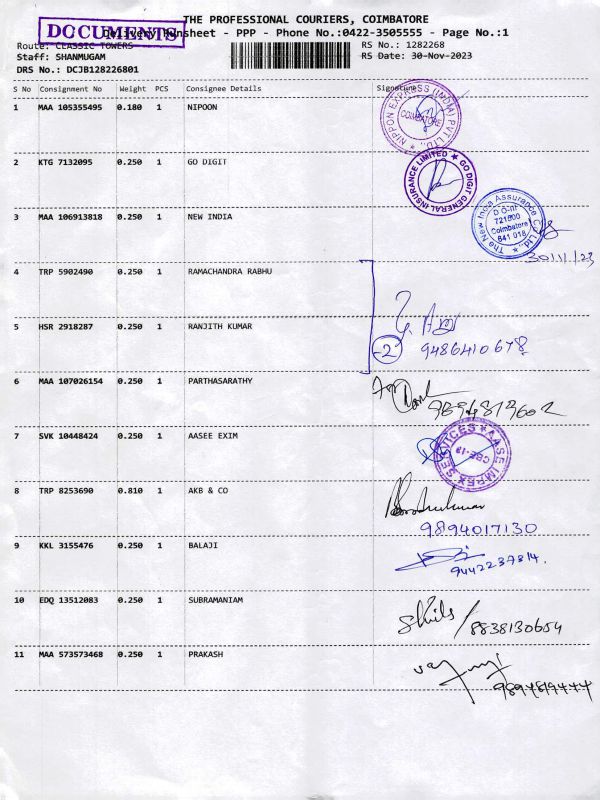 THE PROFESSIONAL COURIERS, COIMBATORE
DOCUMENTS
Delivery Runsheet - PPP - Phone No.:0422-3505555 - Page No.:1
Route: CLASSIC TOWERS
RS No.: 1282268
Staff: SHANMUGAM
RS Date: 30-Nov-2023
DRS No.: DCJB128226801
S No Consignment No Weight PCS Consignee Details Signature
1 MAA 105355495 0.180 1 NIPOON
NIPPON EXPRESS (INDIA) PVT LTD.,
COIMBATORE
2 KTG 7132095 0.250 1 GO DIGIT
GO DIGIT GENERAL INSURANCE LIMITED
3 MAA 106913818 0.250 1 NEW INDIA
The New India Assurance Co. Ltd.,
721600
Coimbatore
641 018
30/11/23
4 TRP 5902490 0.250 1 RAMACHANDRA RABHU
5 HSR 2918287 0.250 1 RANJITH KUMAR
-2
9486410678
6 MAA 107026154 0.250 1 PARTHASARATHY
7 SVK 10448424 0.250 1 AASEE EXIM
AASE IMPEX SERVICES
8 TRP 8253690 0.810 1 AKB & CO
9894017130
9 KKL 3155476 0.250 1 BALAJI
10 EDQ 13512083 0.250 1 SUBRAMANIAM
8838130654
11 MAA 573573468 0.250 1 PRAKASH